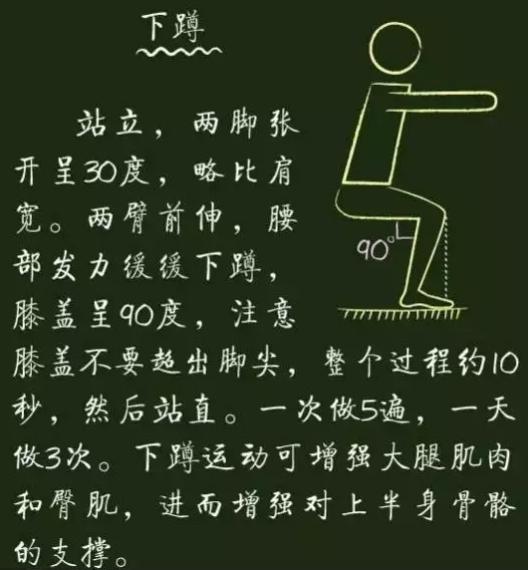 下蹲
站立，两脚张
开呈30度，略比肩
宽。两臂前伸，腰
部发力缓缓下蹲，
90°
膝盖呈90度，注意
膝盖不要超出脚尖，整个过程约10
秒，然后站直。一次做5遍，一天
做3次。下蹲运动可增强大腿肌肉
和臀肌，进而增强对上半身骨骼
的支撑。